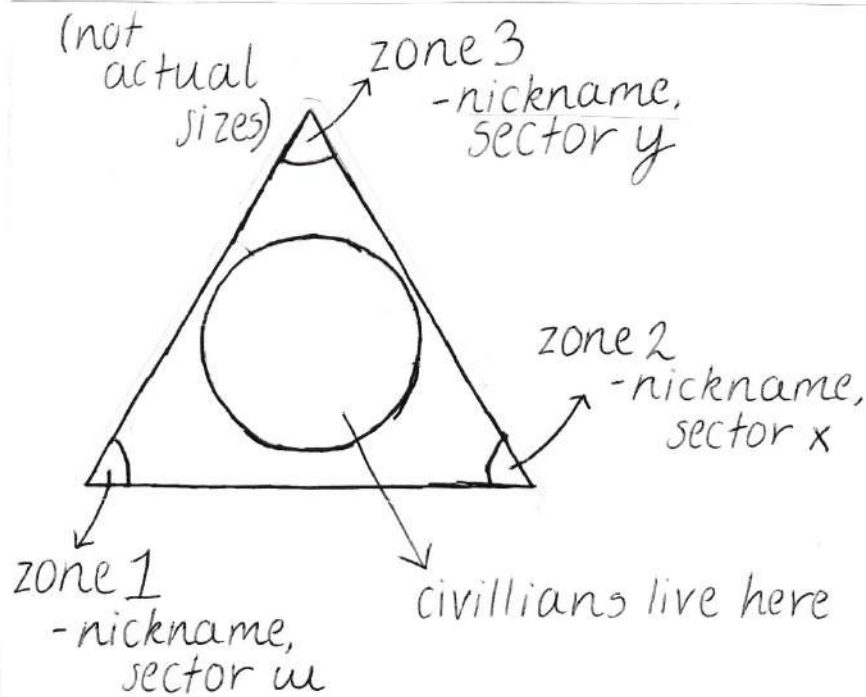 (not
actual
sizes)
zone 3
-nickname,
sector y
zone 2
-nickname,
sector x
zone 1
-nickname,
sector w
civillians live here